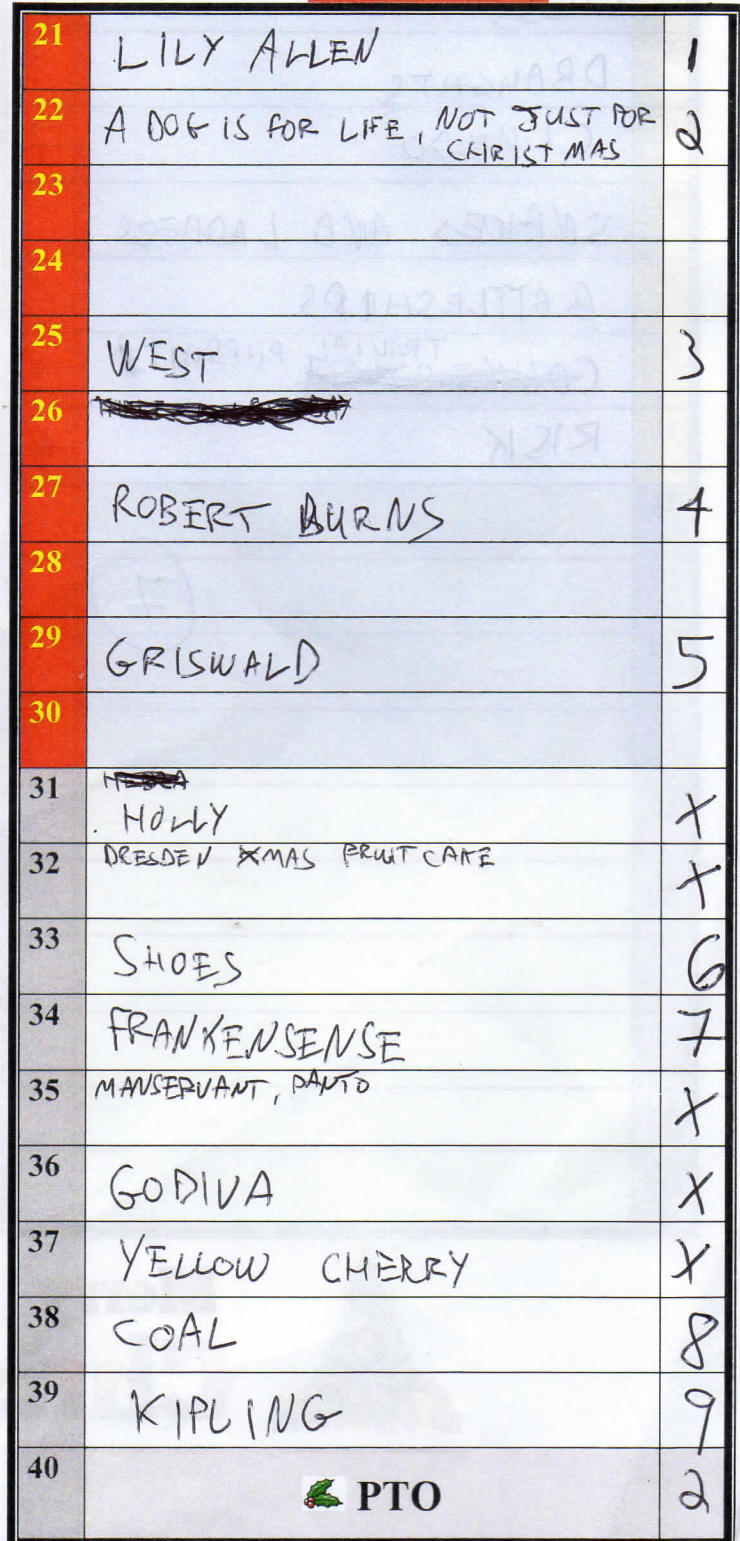 21 LILY ALLEN 1
22 A DOG IS FOR LIFE, NOT JUST FOR 2
CHRISTMAS
23
24
25 WEST 3
26
27 ROBERT BURNS 4
28
29 GRISWALD 5
30
31 HOLLY X
32 DRESDEN XMAS FRUIT CAKE X
33 SHOES 6
34 FRANKENSENSE 7
35 MANSERVANT, PANTO X
36 GODIVA X
37 YELLOW CHERRY X
38 COAL 8
39 KIPLING 9
40 PTO 2